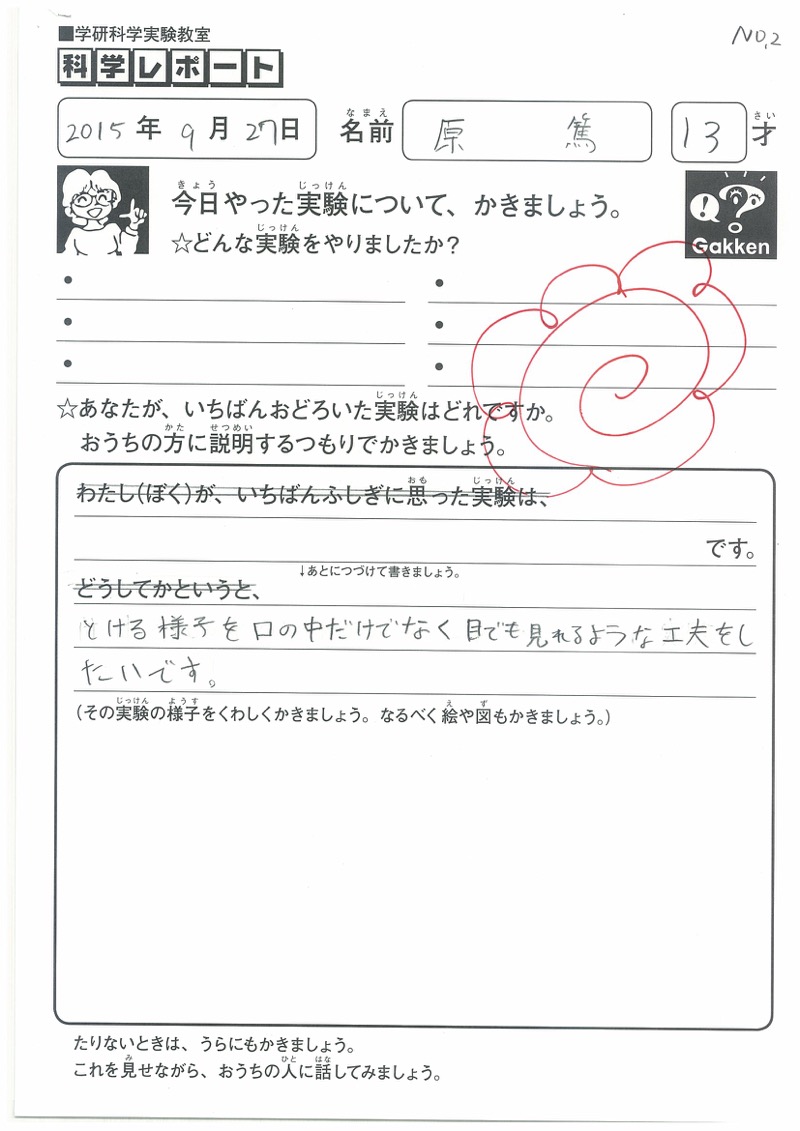 ■学研科学実験教室
NO,2
科学レポート
2015年9月27日 名前 原 篤 13才
今日やった実験について、かきましょう。
☆どんな実験をやりましたか?
Gakken
☆あなたが、いちばんおどろいた実験はどれですか。
おうちの方に説明するつもりでかきましょう。
わたし(ぼく)が、いちばんふしぎに思った実験は、
です。
↓あとにつづけて書きましょう。
どうしてかというと、
とける様子を口の中だけでなく目でも見れるような工夫をし
たいです。
(その実験の様子をくわしくかきましょう。なるべく絵や図もかきましょう。)
たりないときは、うらにもかきましょう。
これを見せながら、おうちの人に話してみましょう。